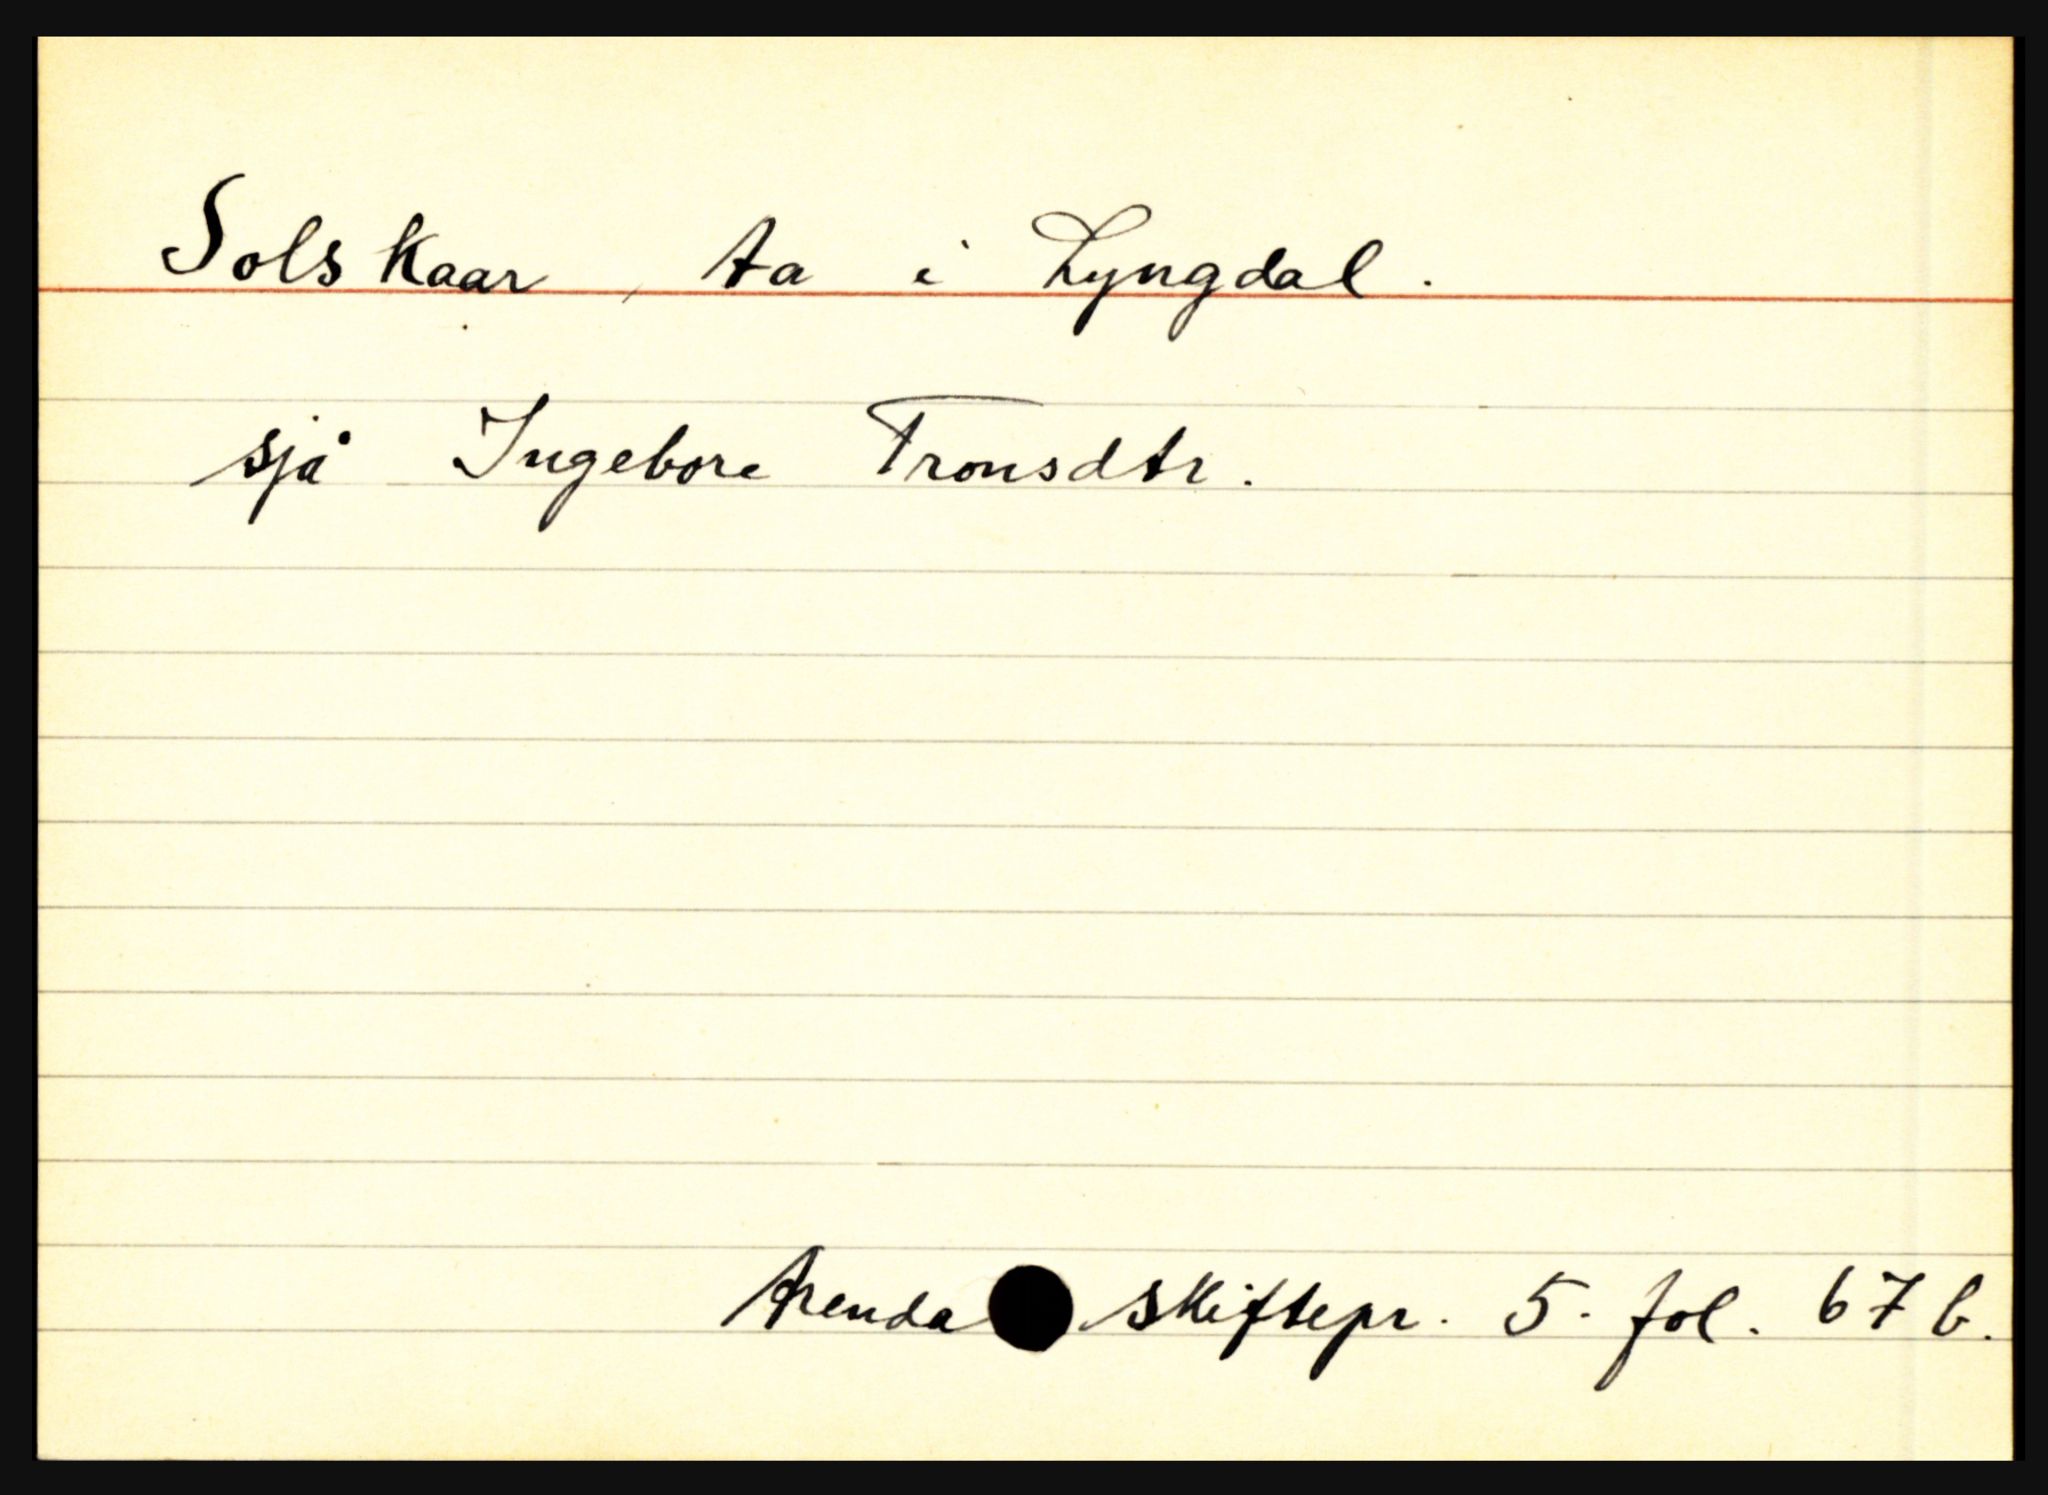 Solskaar, Aa i Lyngdal.
sjå Ingebore Tronsdtr.
Arenda skiftepr. 5. fol. 67 b.